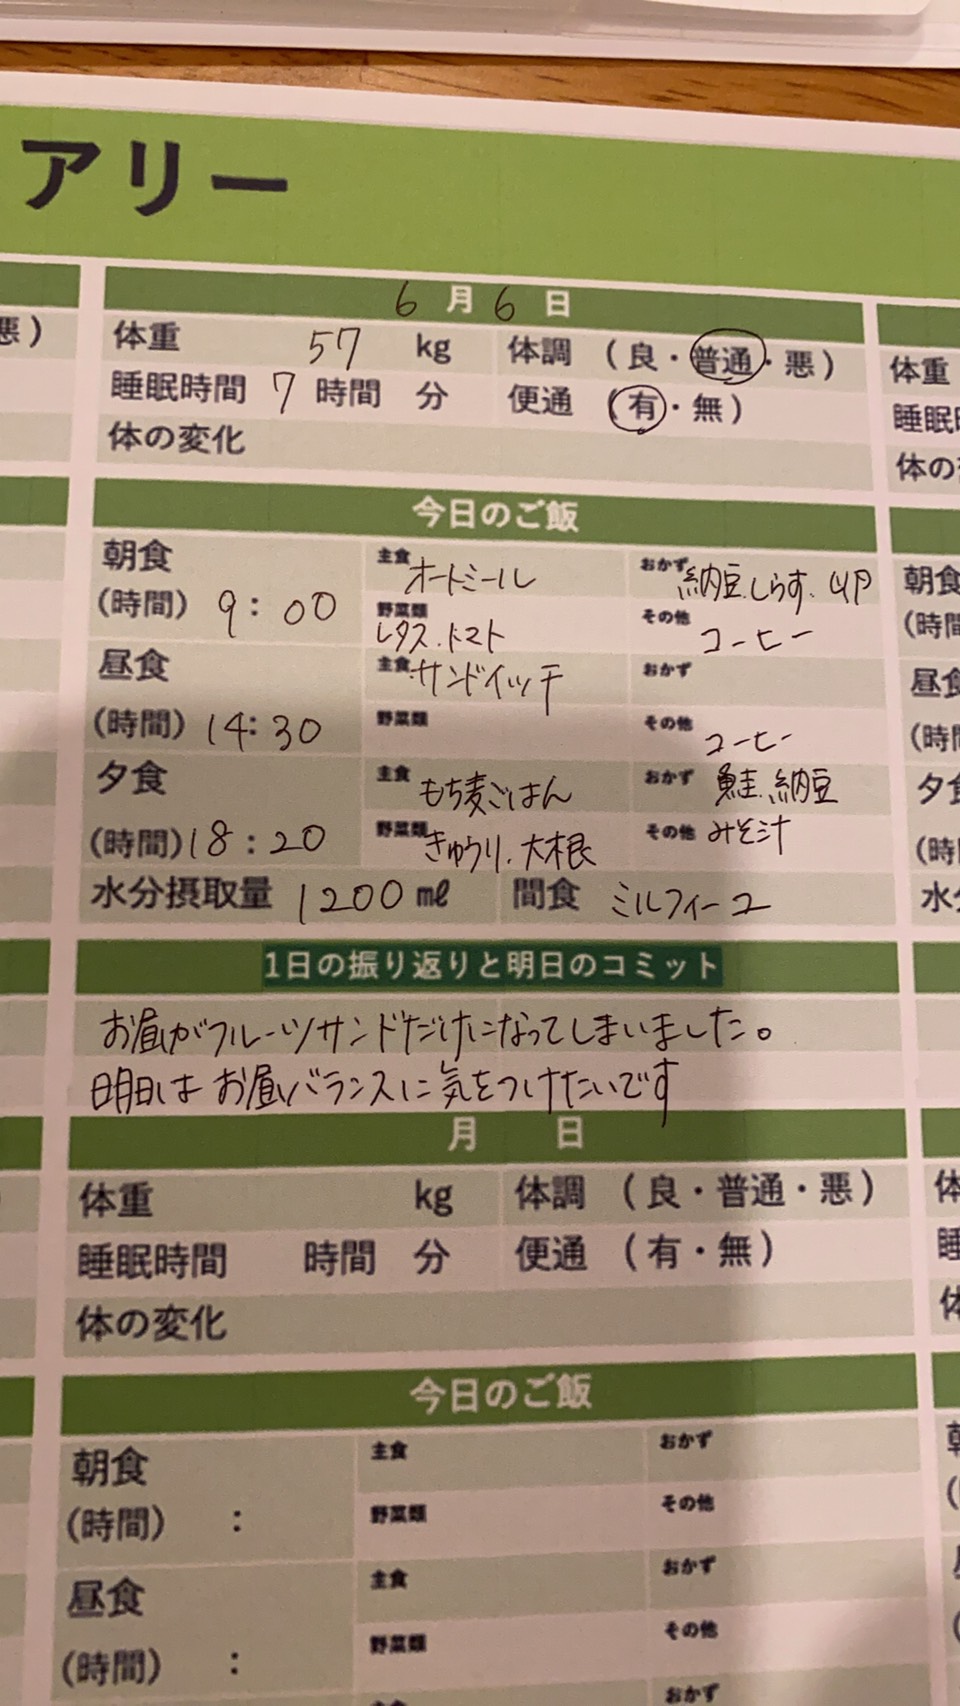 アリー
6月6日
悪)
体重 57 kg 体調 (良・普通・悪)
体重
睡眠時間 7 時間 分 便通 (有・無)
睡眠
体の変化
体の
今日のご飯
朝食 主食 オートミール おかず 納豆.しらす.
朝食
(時間) 9:00 野菜類 レタス.トマト その他 コーヒー
(時間
昼食 主食 サンドイッチ おかず
昼食
(時間) 14:30 野菜類 その他 コーヒー
(時間
夕食 主食 もち麦ごはん おかず 鮭.納豆
夕食
(時間) 18:20 野菜類 きゅうり.大根 その他 みそ汁
(時間
水分摂取量 1200 ml 間食 ミルフィーユ
水分
1日の振り返りと明日のコミット
お昼がフルーツサンドだけになってしまいました。
明日はお昼バランスに気をつけたいです
月 日
体重 kg 体調 (良・普通・悪)
睡眠時間 時間 分 便通 (有・無)
体の変化
今日のご飯
朝食 主食 おかず
(時間) : 野菜類 その他
昼食 主食 おかず
(時間) : 野菜類 その他
主食 おかず